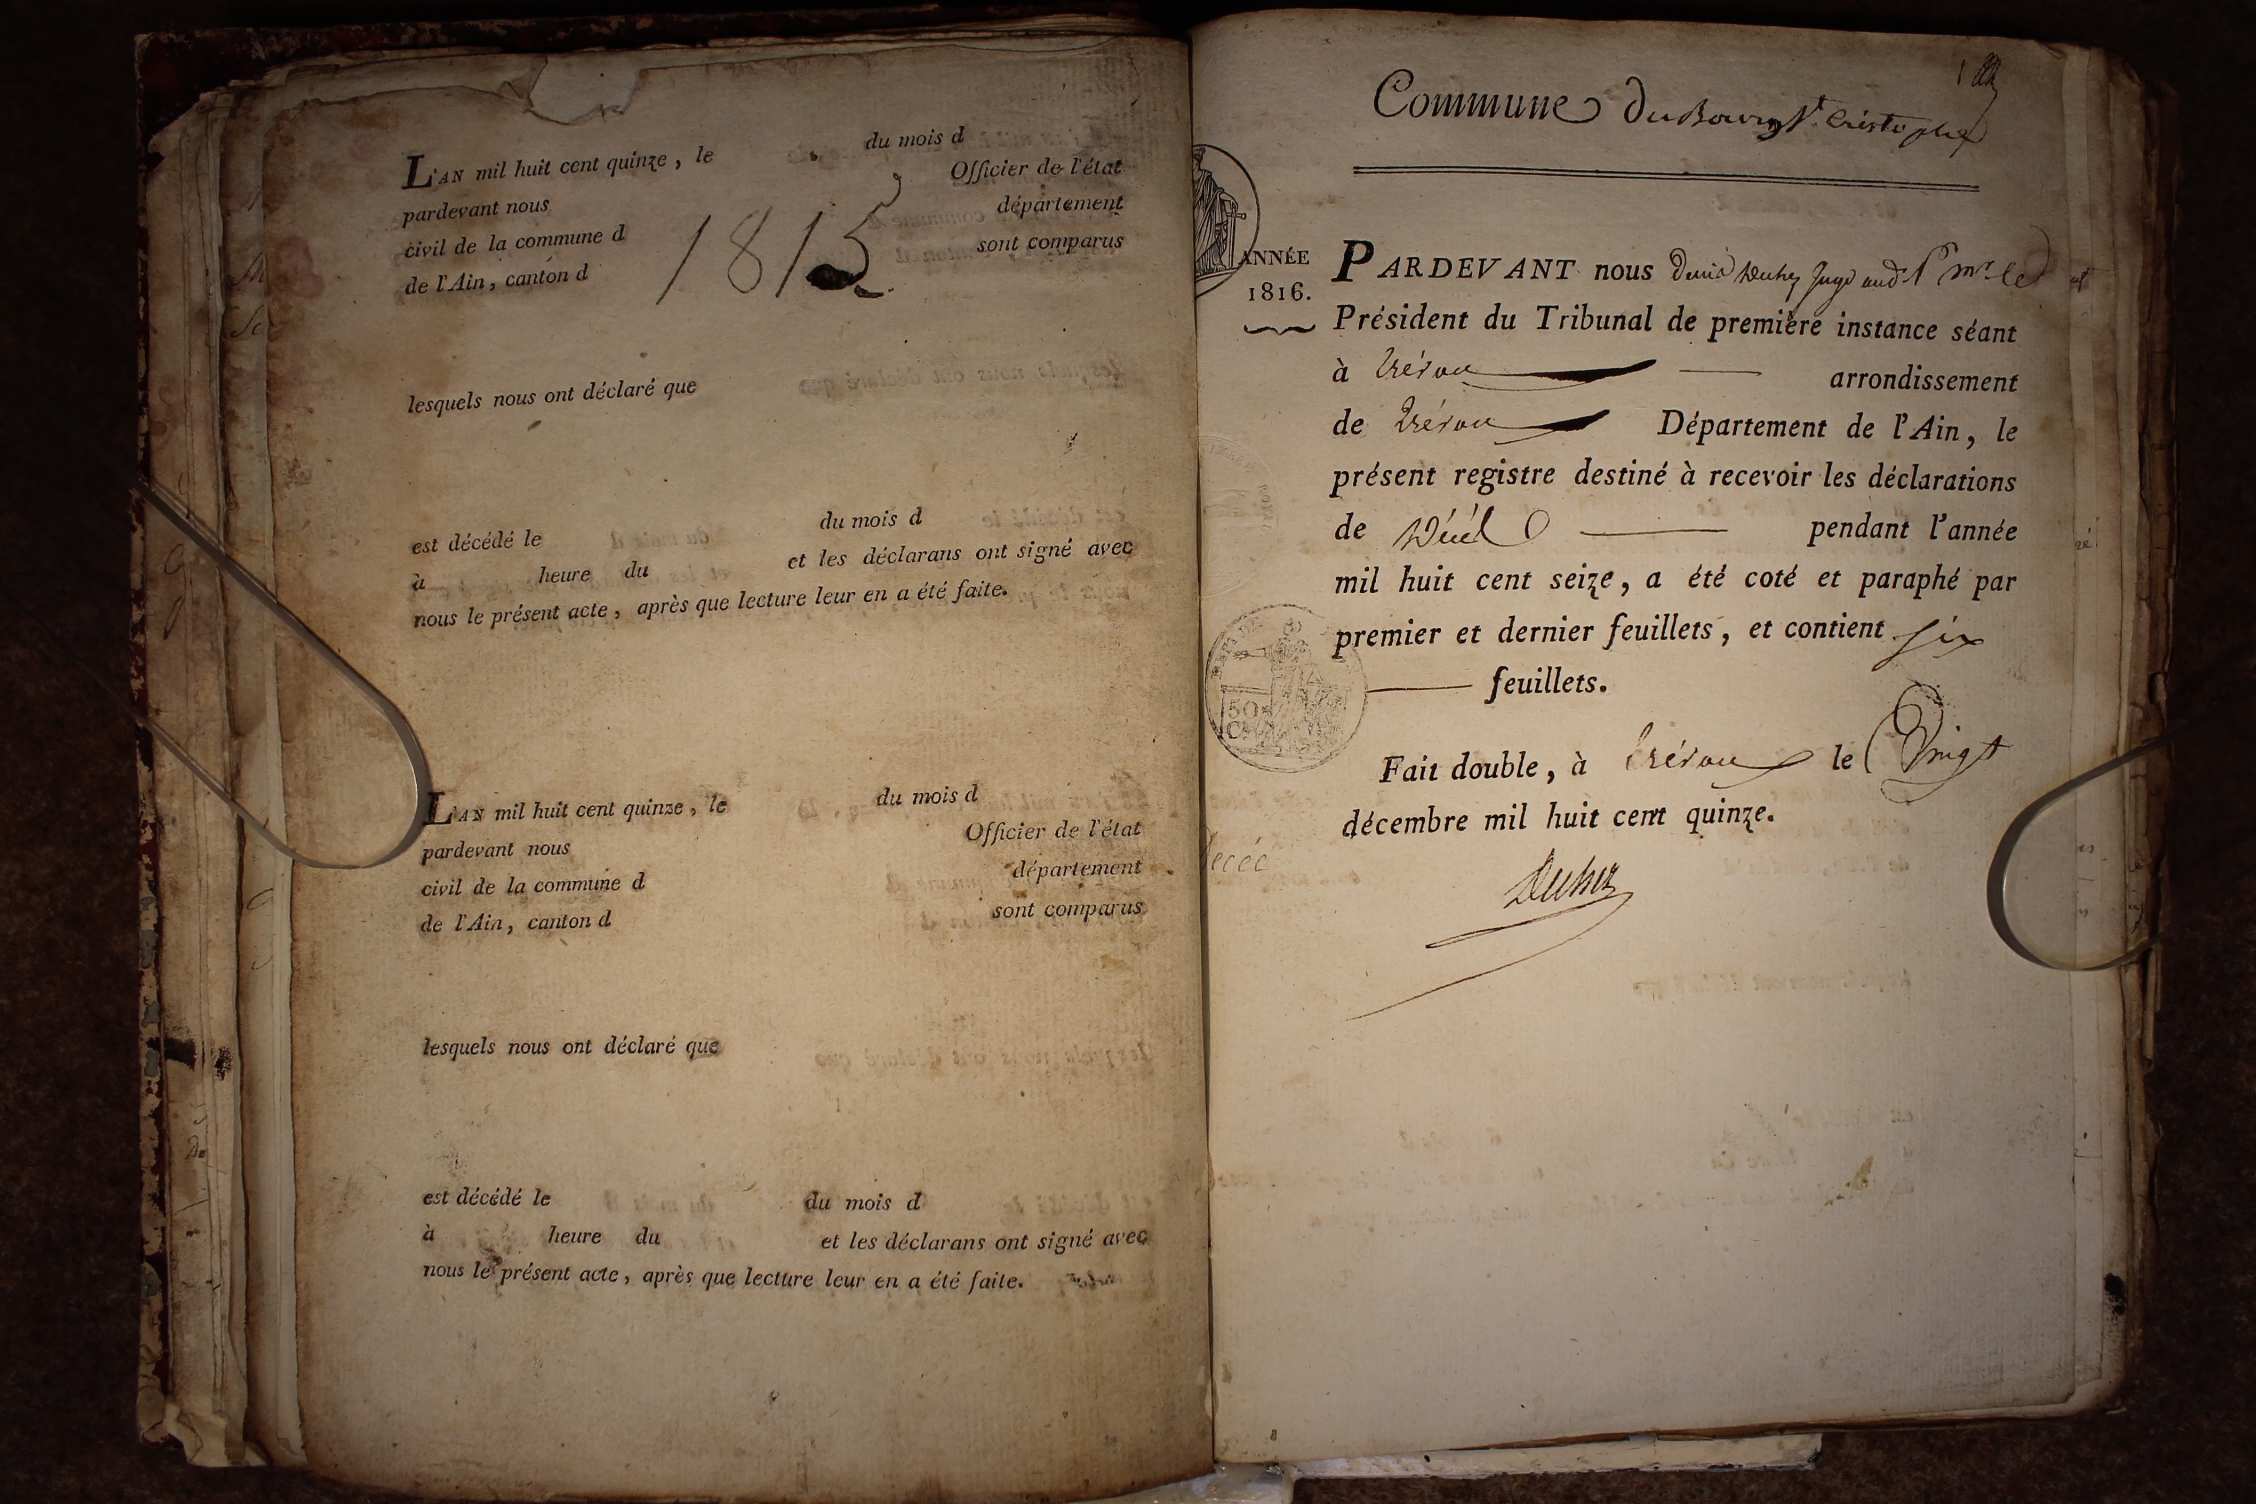 L'AN mil huit cent quinze, le du mois d
pardevant nous Officier de l'état
civil de la commune d département
de l'Ain, canton d sont comparus
1815
lesquels nous ont déclaré que
est décédé le du mois d
à heure du et les déclarans ont signé avec
nous le présent acte, après que lecture leur en a été faite.
L'AN mil huit cent quinze, le du mois d
pardevant nous Officier de l'état
civil de la commune d département
de l'Ain, canton d sont comparus
lesquels nous ont déclaré que
est décédé le du mois d
à heure du et les déclarans ont signé avec
nous le présent acte, après que lecture leur en a été faite.
Commune du Bourg St. Cristophe
ANNÉE
1816.
PARDEVANT nous Denis Duhez Juge
Président du Tribunal de première instance séant
à Trévoux arrondissement
de Trévoux Département de l'Ain, le
présent registre destiné à recevoir les déclarations
de Décès pendant l'année
mil huit cent seize, a été coté et paraphé par
premier et dernier feuillets, et contient six
feuillets.
50
C.
Fait double, à Trévoux le Vingt
décembre mil huit cent quinze.
Duhez